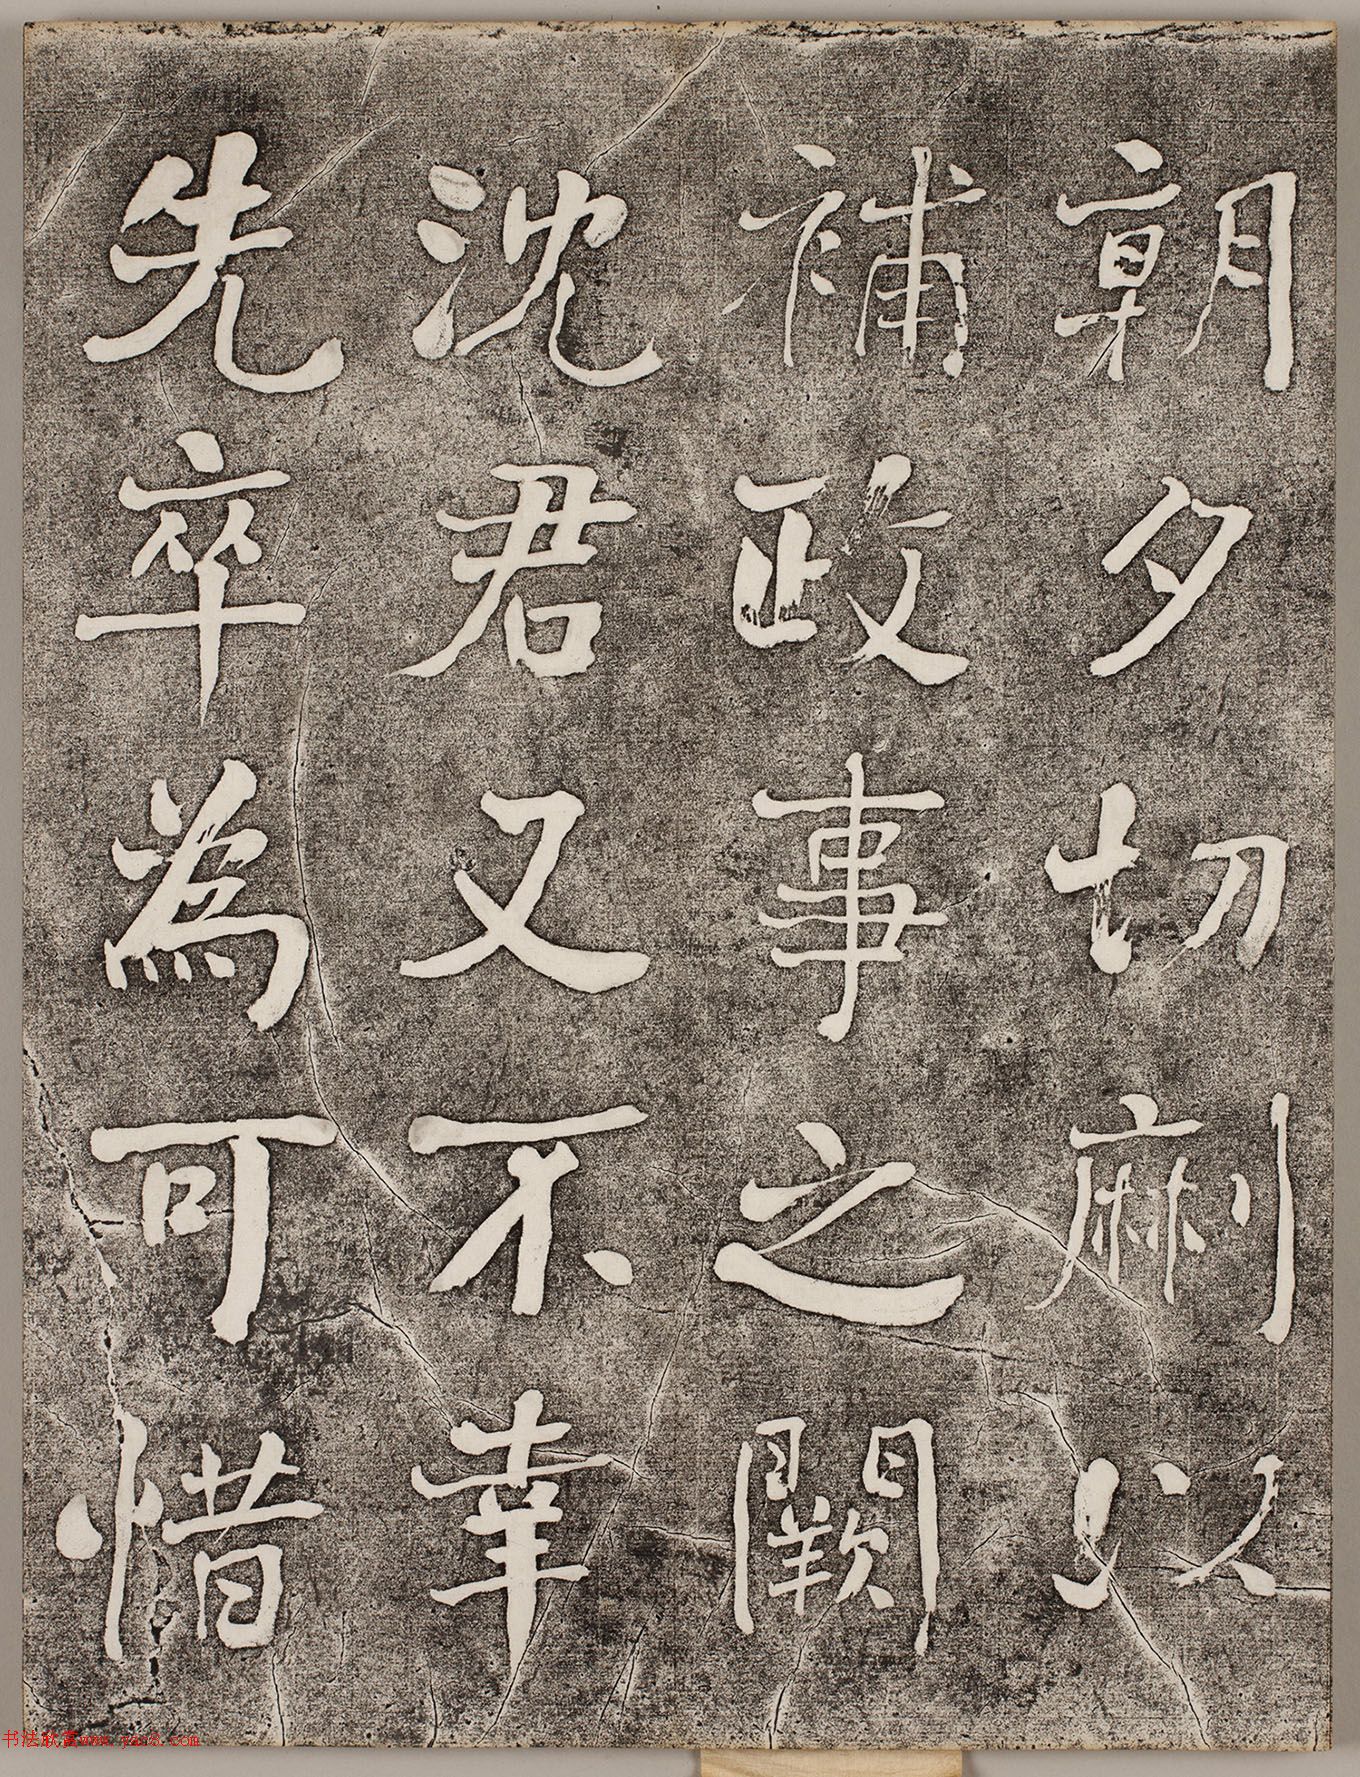 朝夕切劘以
補政事之闕
沈君又不幸
先卒為可惜
书法欣赏www.yac8.com